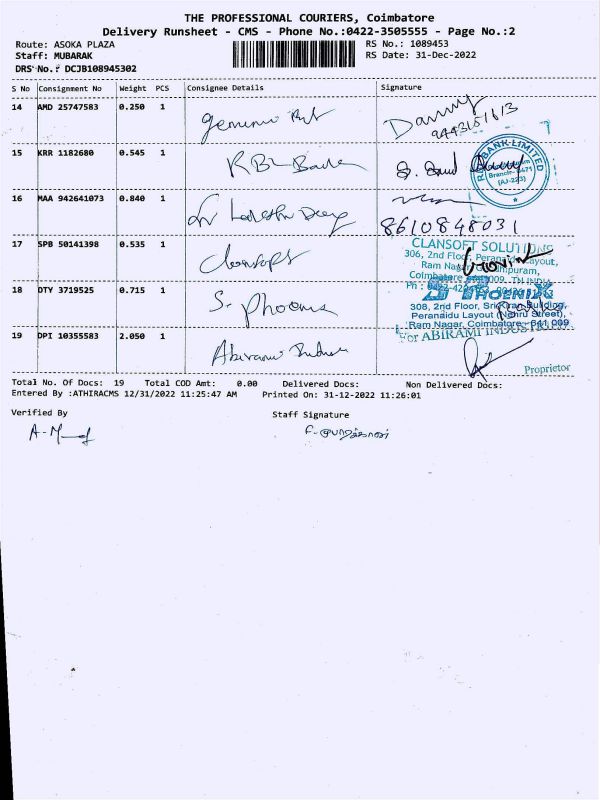 THE PROFESSIONAL COURIERS, Coimbatore
Delivery Runsheet - CMS - Phone No.:0422-3505555 - Page No.:2
Route: ASOKA PLAZA RS No.: 1089453
Staff: MUBARAK RS Date: 31-Dec-2022
DRS No.: DCJB108945302
S No Consignment No Weight PCS Consignee Details Signature
14 AMD 25747583 0.250 1
9443151613
15 KRR 1182680 0.545 1 RBL Bank
BANK LIMITED
16 MAA 942641073 0.840 1
8610848031
17 SPB 50141398 0.535 1 Cleansoft
CLANSOFT SOLUTIONS
306, 2nd Floor, Peranaidu Layout,
Ram Nagar,
Coimbatore
18 DTY 3719525 0.715 1 S-
S PHOENIX
308, 2nd Floor, Building,
Peranaidu Layout (Nehru Street),
Ram Nagar, Coimbatore - 641 009
19 DPI 10355583 2.050 1
For ABIRAMI INDUSTRIES
Proprietor
Total No. Of Docs: 19 Total COD Amt: 0.00 Delivered Docs: Non Delivered Docs:
Entered By :ATHIRACMS 12/31/2022 11:25:47 AM Printed On: 31-12-2022 11:26:01
Verified By Staff Signature